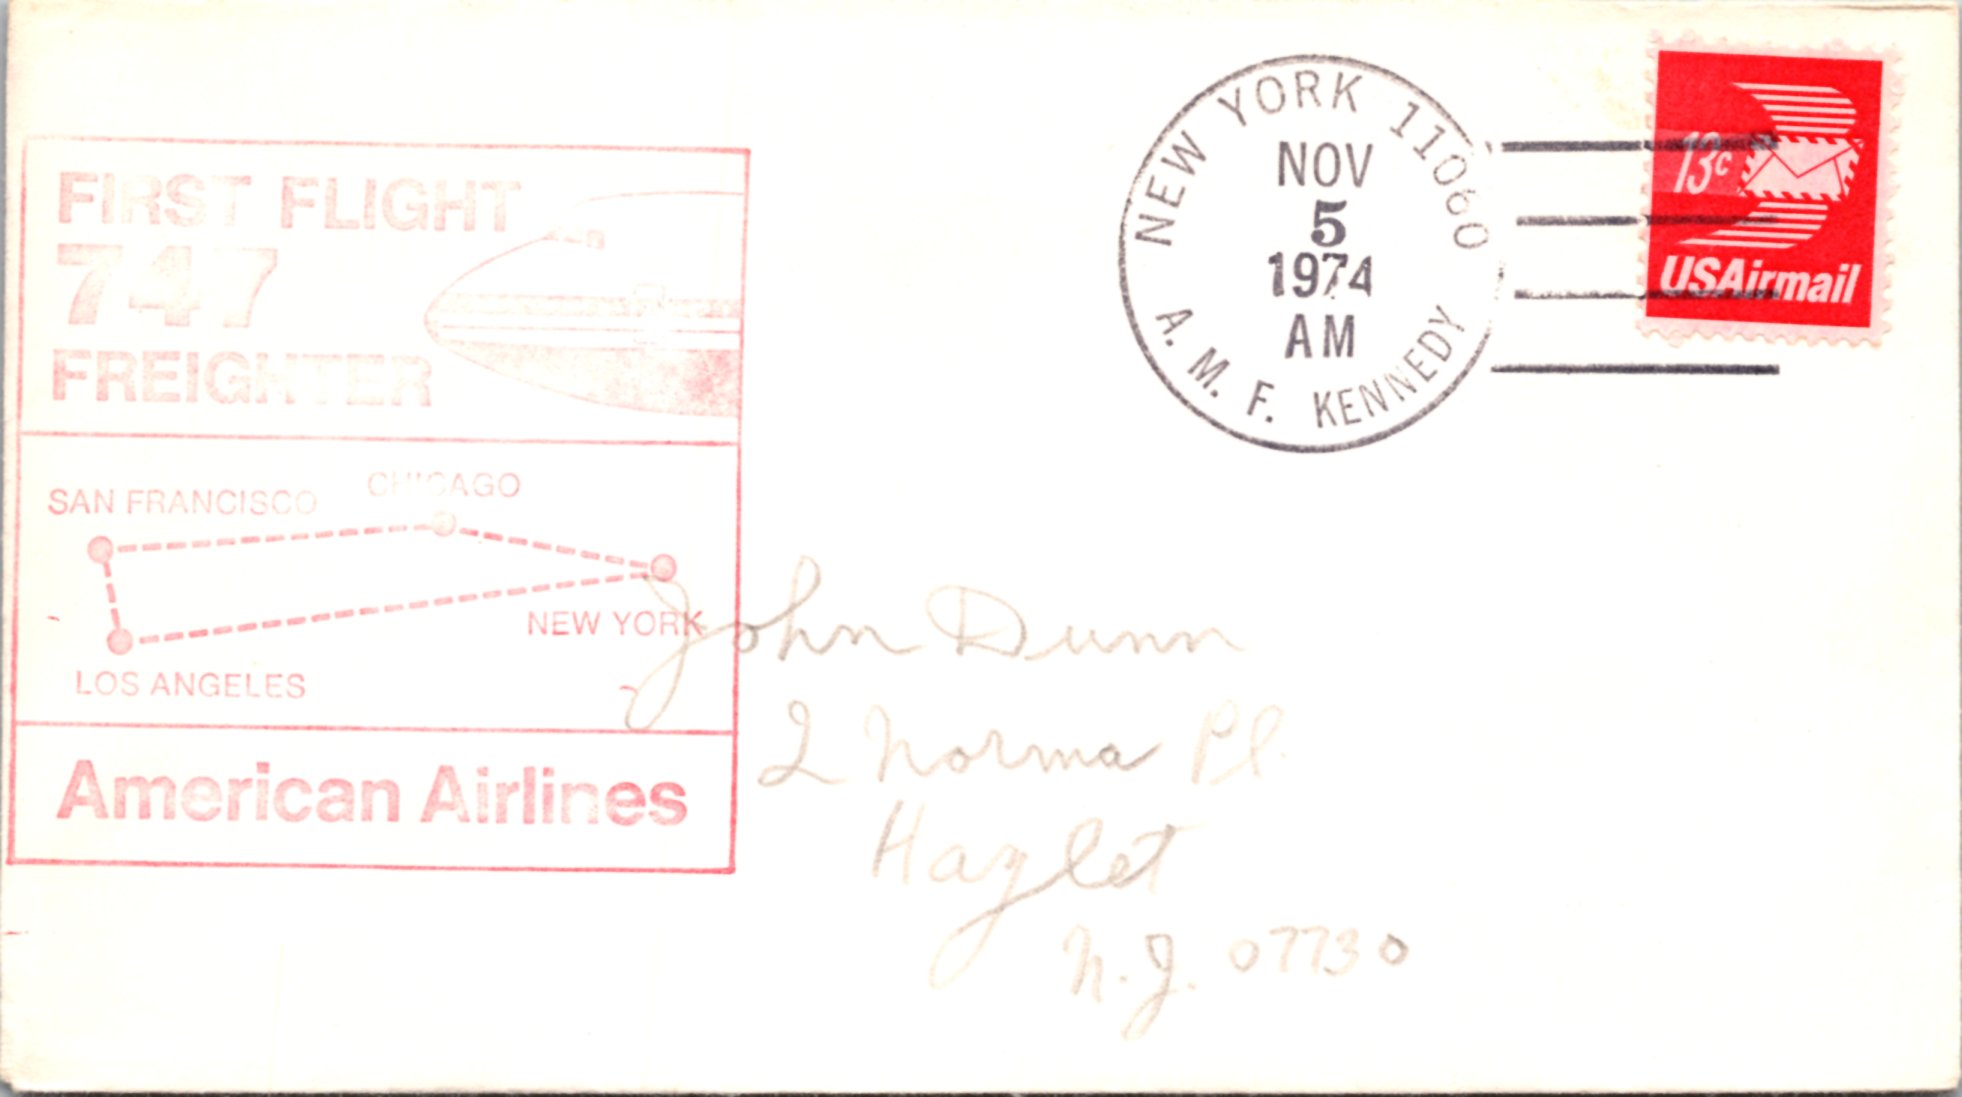 FIRST FLIGHT
747
FREIGHTER
SAN FRANCISCO
CHICAGO
NEW YORK
LOS ANGELES
American Airlines
NEW YORK 11060
NOV
5
1974
AM
A. M. F. KENNEDY
13c
USAirmail
John Dunn
2 Norma Pl.
Hazlet
N.J. 07730